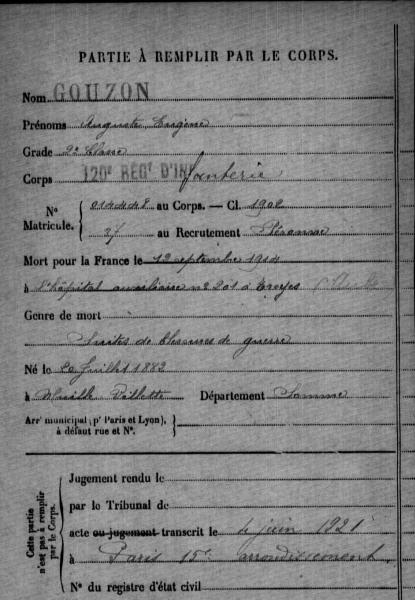 PARTIE À REMPLIR PAR LE CORPS.
Nom GOUZON
Prénoms Auguste Eugène
Grade 2e Classe
Corps 120e RÉGt D'INfanterie
No Matricule. { 014448 au Corps. — Cl. 1902
27 au Recrutement Péronne
Mort pour la France le 12 septembre 1914
à l'hôpital auxiliaire no 201 à Troyes
Genre de mort
Suites de blessures de guerre
Né le 20 Juillet 1882
à Muille Villette Département Somme
Arrt municipal (pr Paris et Lyon), à défaut rue et No. }
Cette partie n'est pas à remplir par le Corps.
Jugement rendu le
par le Tribunal de
acte ou jugement transcrit le 4 juin 1921
à Paris 15e arrondissement
No du registre d'état civil